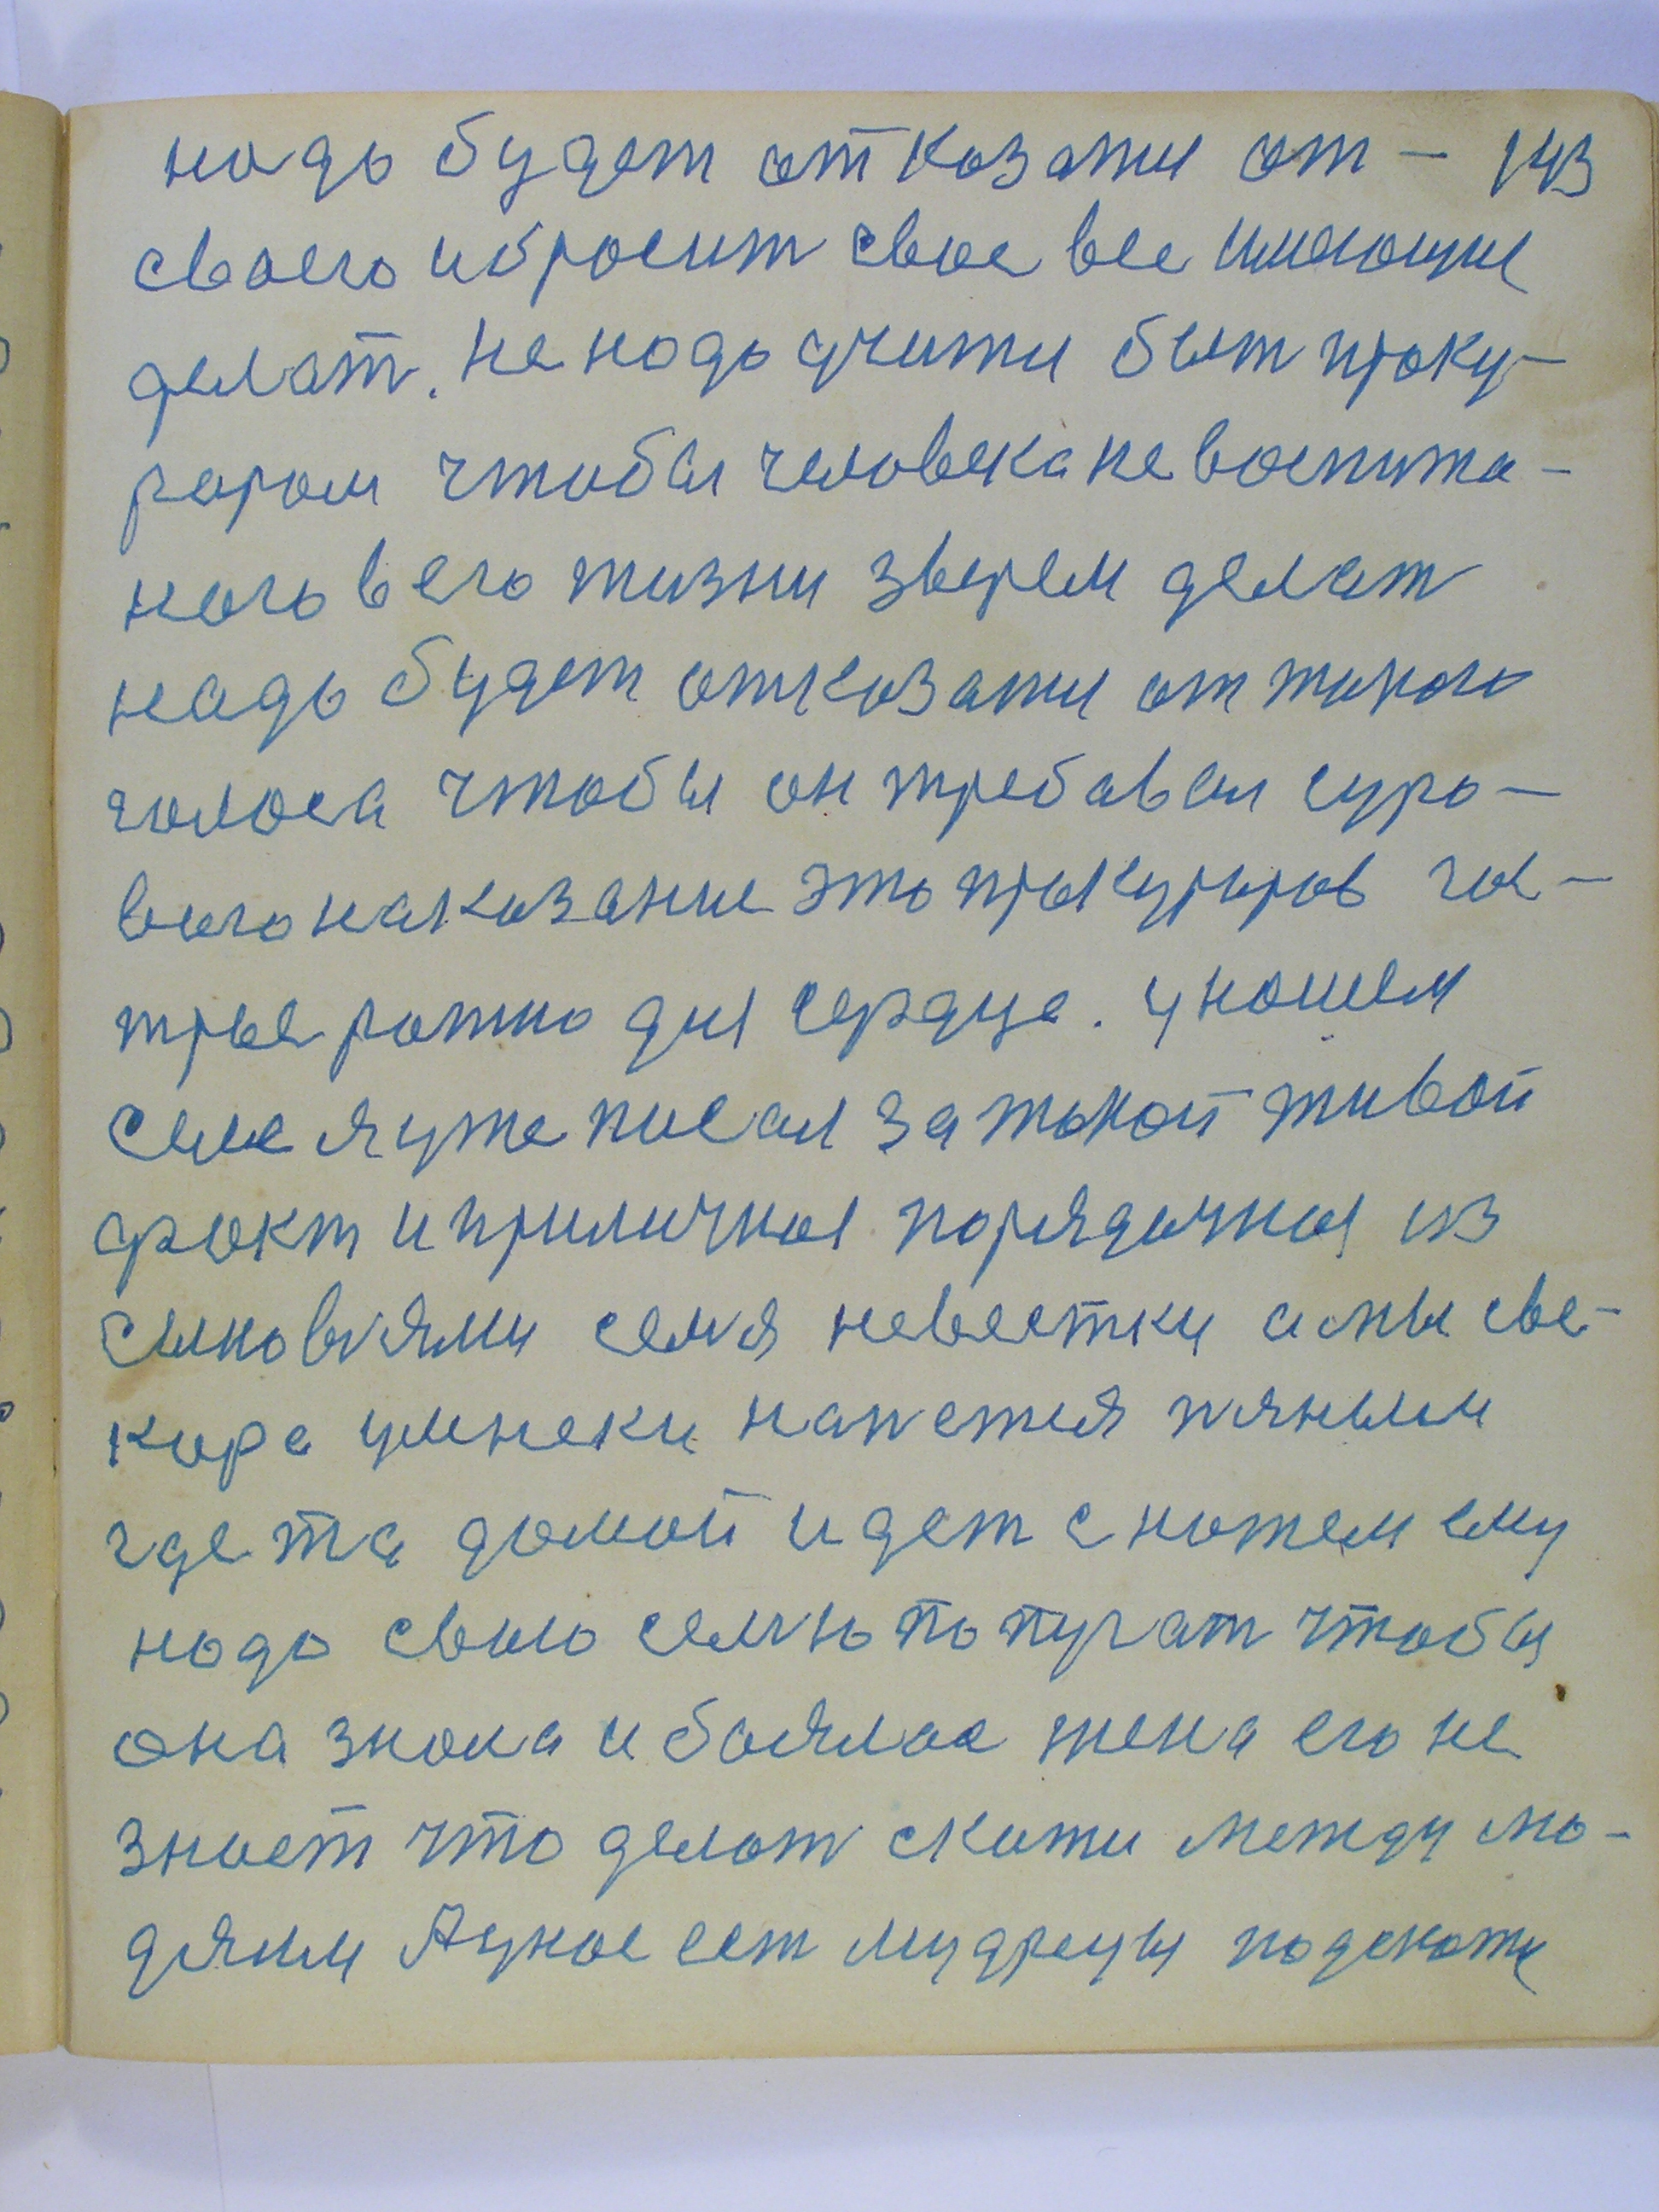 надо будет отказати от - 143
своего и бросит свое все имеющие
делат. не надо учити быт проку-
рором чтобы человека не воспита-
ного в его жизни зверем делат
надо будет отказати от такого
голоса чтобы он требовал суро-
вого наказание это прокуроров
для сердца. у нашем
селе я уже писал за такой живой
факт и приличная порядочная из
сыновями семя невестки сыны све-
кора напется пяным
где та домой идет с ножем ему
надо свою семю попугат чтобы
она знала и боялас жена его не
знает что делат скажи между лю-
дями Аукае ест мудрецы подскажи